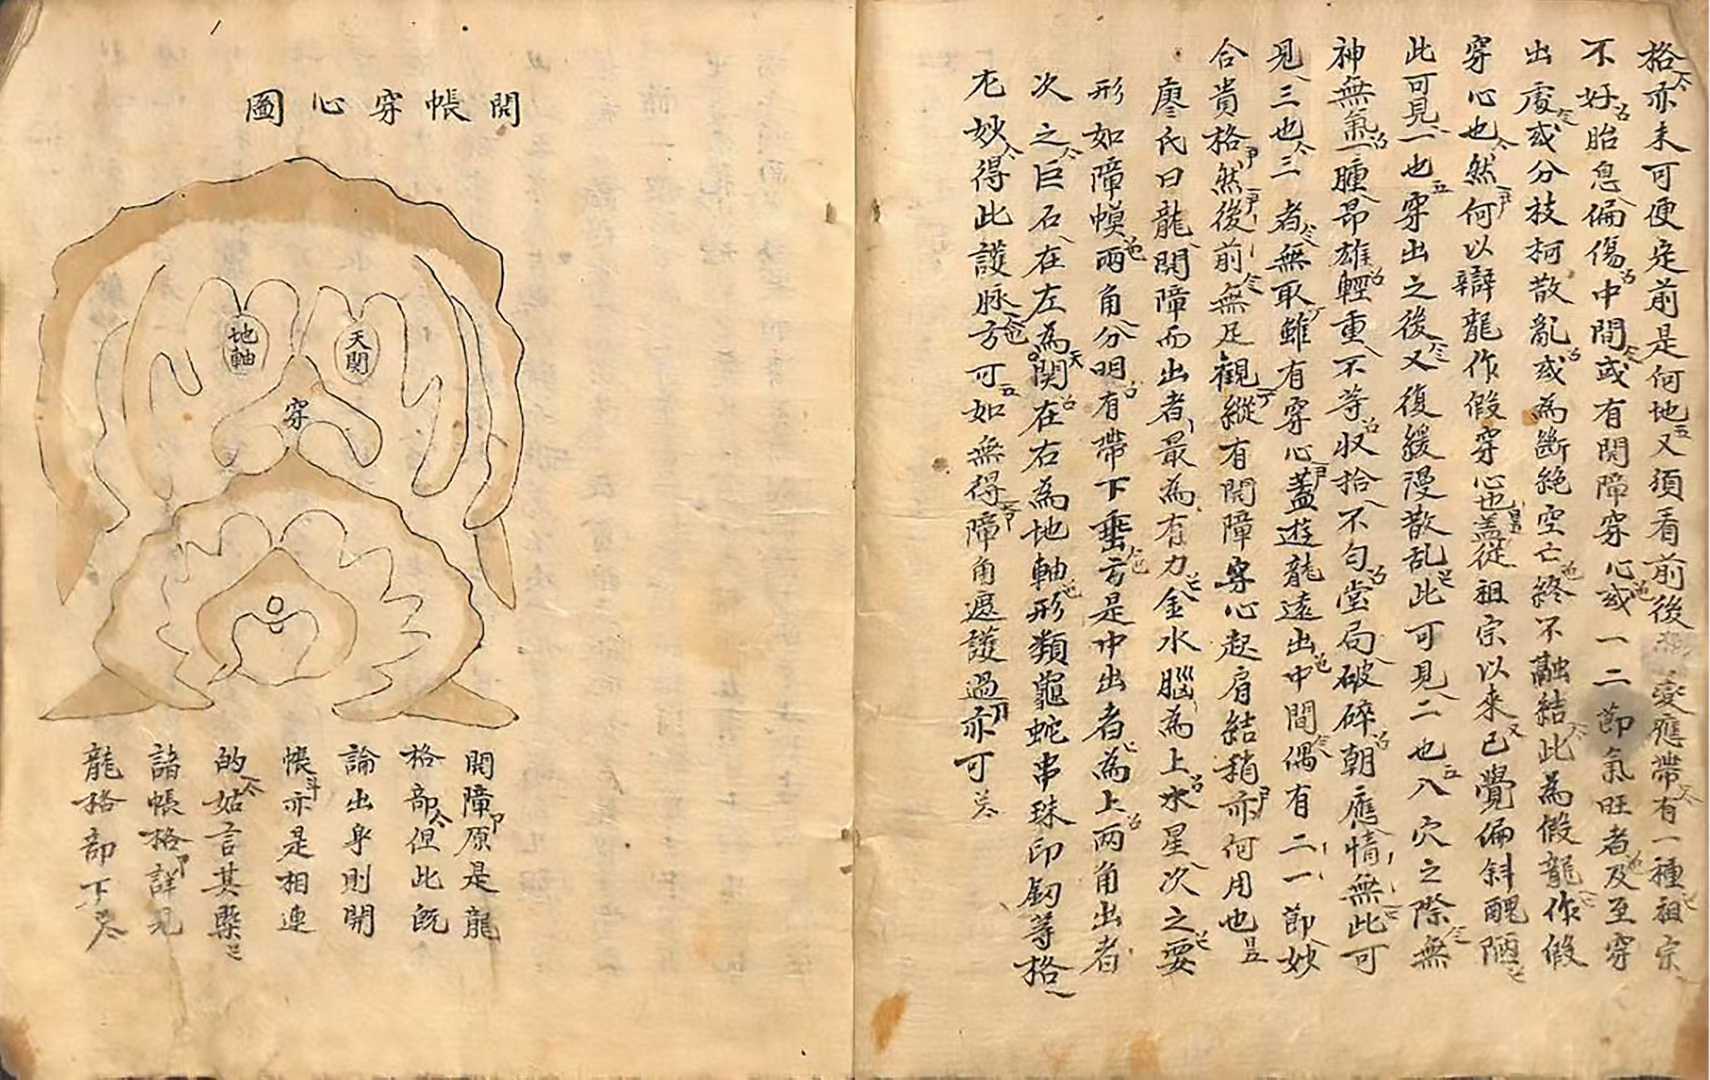 格亦未可便定前是何地又須看前後変應帶有一種祖宗
不好胎息偏傷中間或有開障穿心或一二節氣旺者及至穿
出處或分枝柯散亂或為斷絶空亡終不融結此為假龍作假
穿心也然何以辯龍作假穿心也盖從祖宗以來已覺偏斜醜陋
此可見一也穿出之後又復緩漫散乱此可見二也八穴之際無
神無氣一腫昻雄輕重不等収拾不勻堂局破碎朝應情無此可
見三也三者無取雖有穿心蓋遊龍遠出中間偶有二一節妙
合貴格然後前無足觀縱有開障穿心起肩結稍亦何用也
廖氏曰龍開障而出者最為有力金水腦為上水星次之要
形如障幙兩角分明有帶下垂方是中出者為上兩角出者
次之巨石在左為天関在右為地軸形類龜蛇串珠印劍等格
尤妙得此護脉方可如無得障角遮護過亦可
開帳穿心圖
天関
地軸
穿
開障原是龍
格部但此旣
論出身則開
帳亦是相連
的姑言其槩
諸帳格詳見
龍格部下